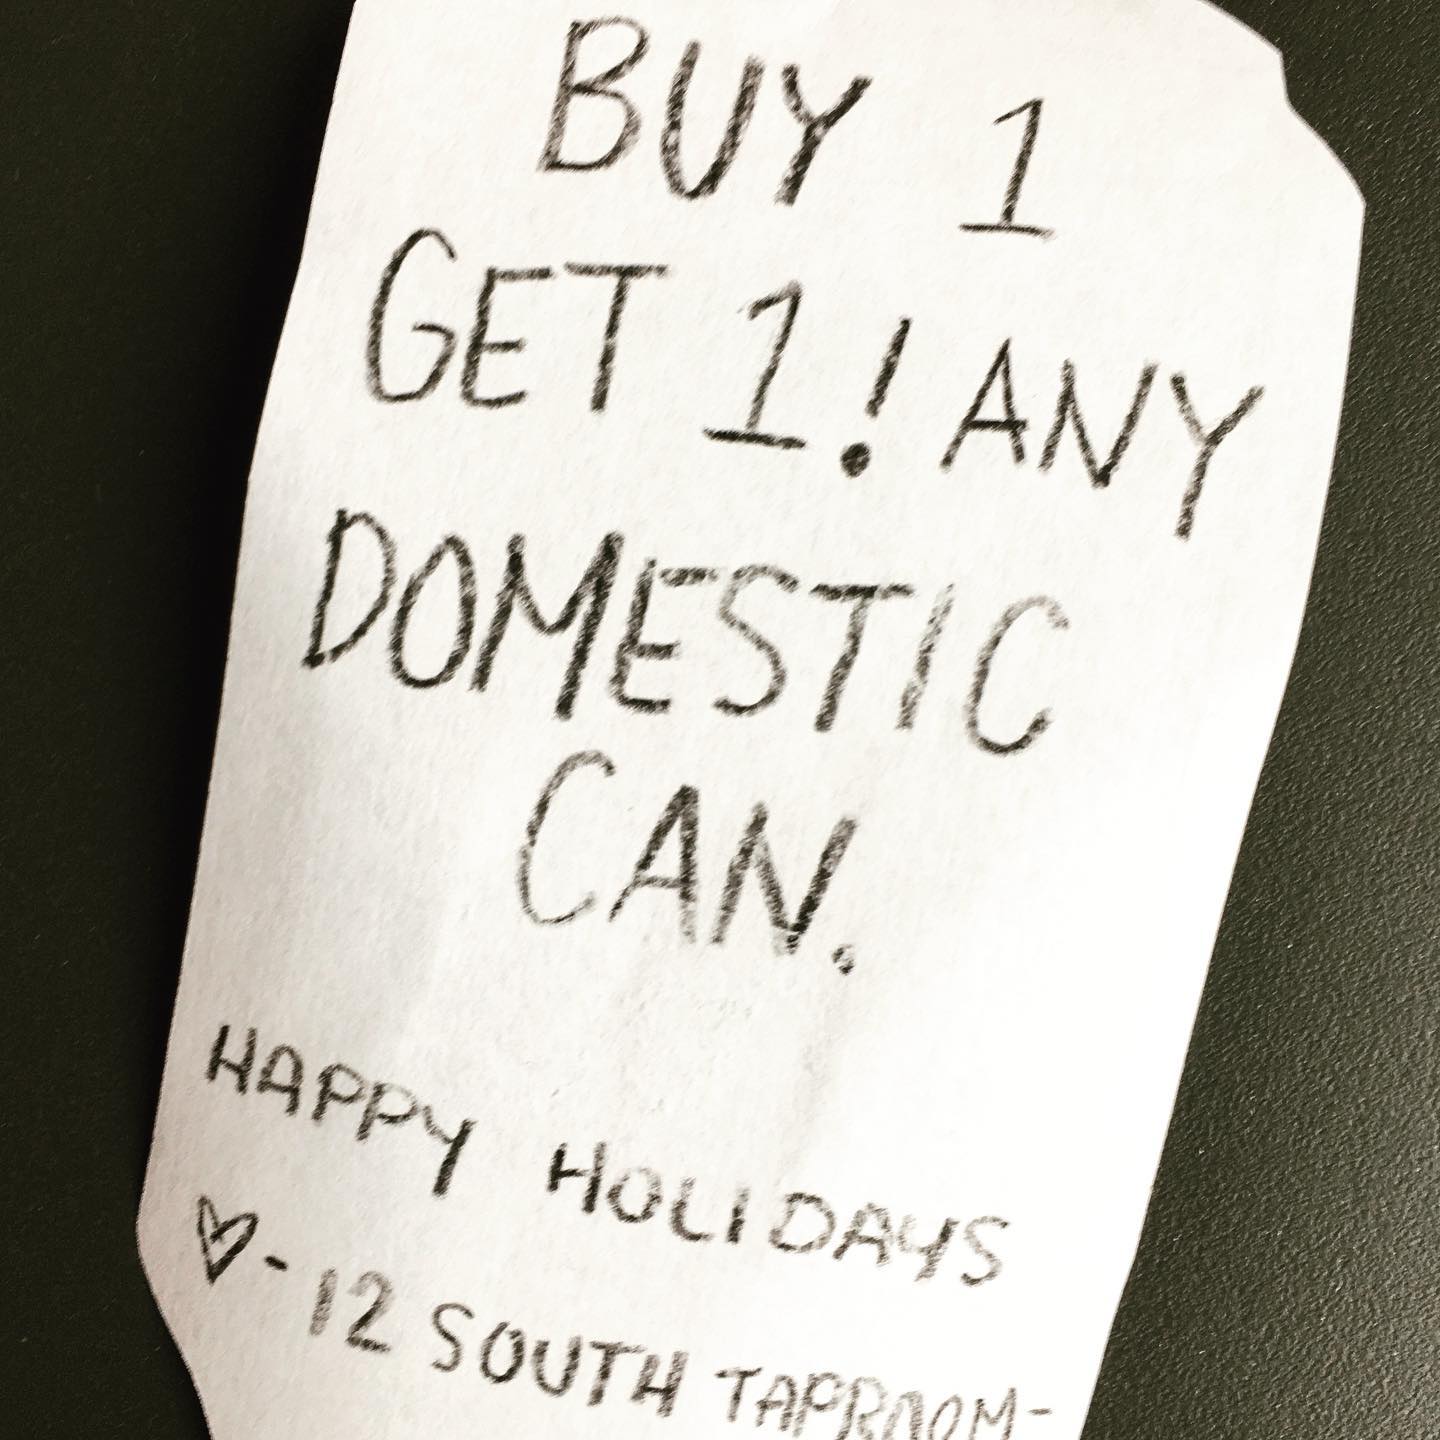 BUY 1
GET 1! ANY
DOMESTIC
CAN.
HAPPY HOLIDAYS
♡-12 SOUTH TAPROOM-